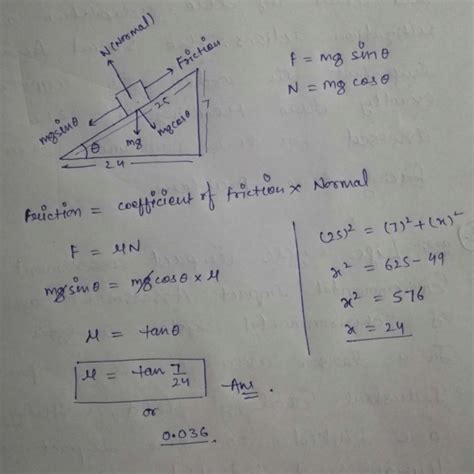 N(Normal)
Friction
F = mg sinθ
N = mg cosθ
25
7
mg sinθ
mg cosθ
mg
θ
24
Friction = coefficient of friction x Normal
F = μN
mg sinθ = mg cosθ x μ
μ = tanθ
μ = tan 7/24 -Ans.
or
0.036
(25)² = (7)² + (x)²
x² = 625 - 49
x² = 576
x = 24